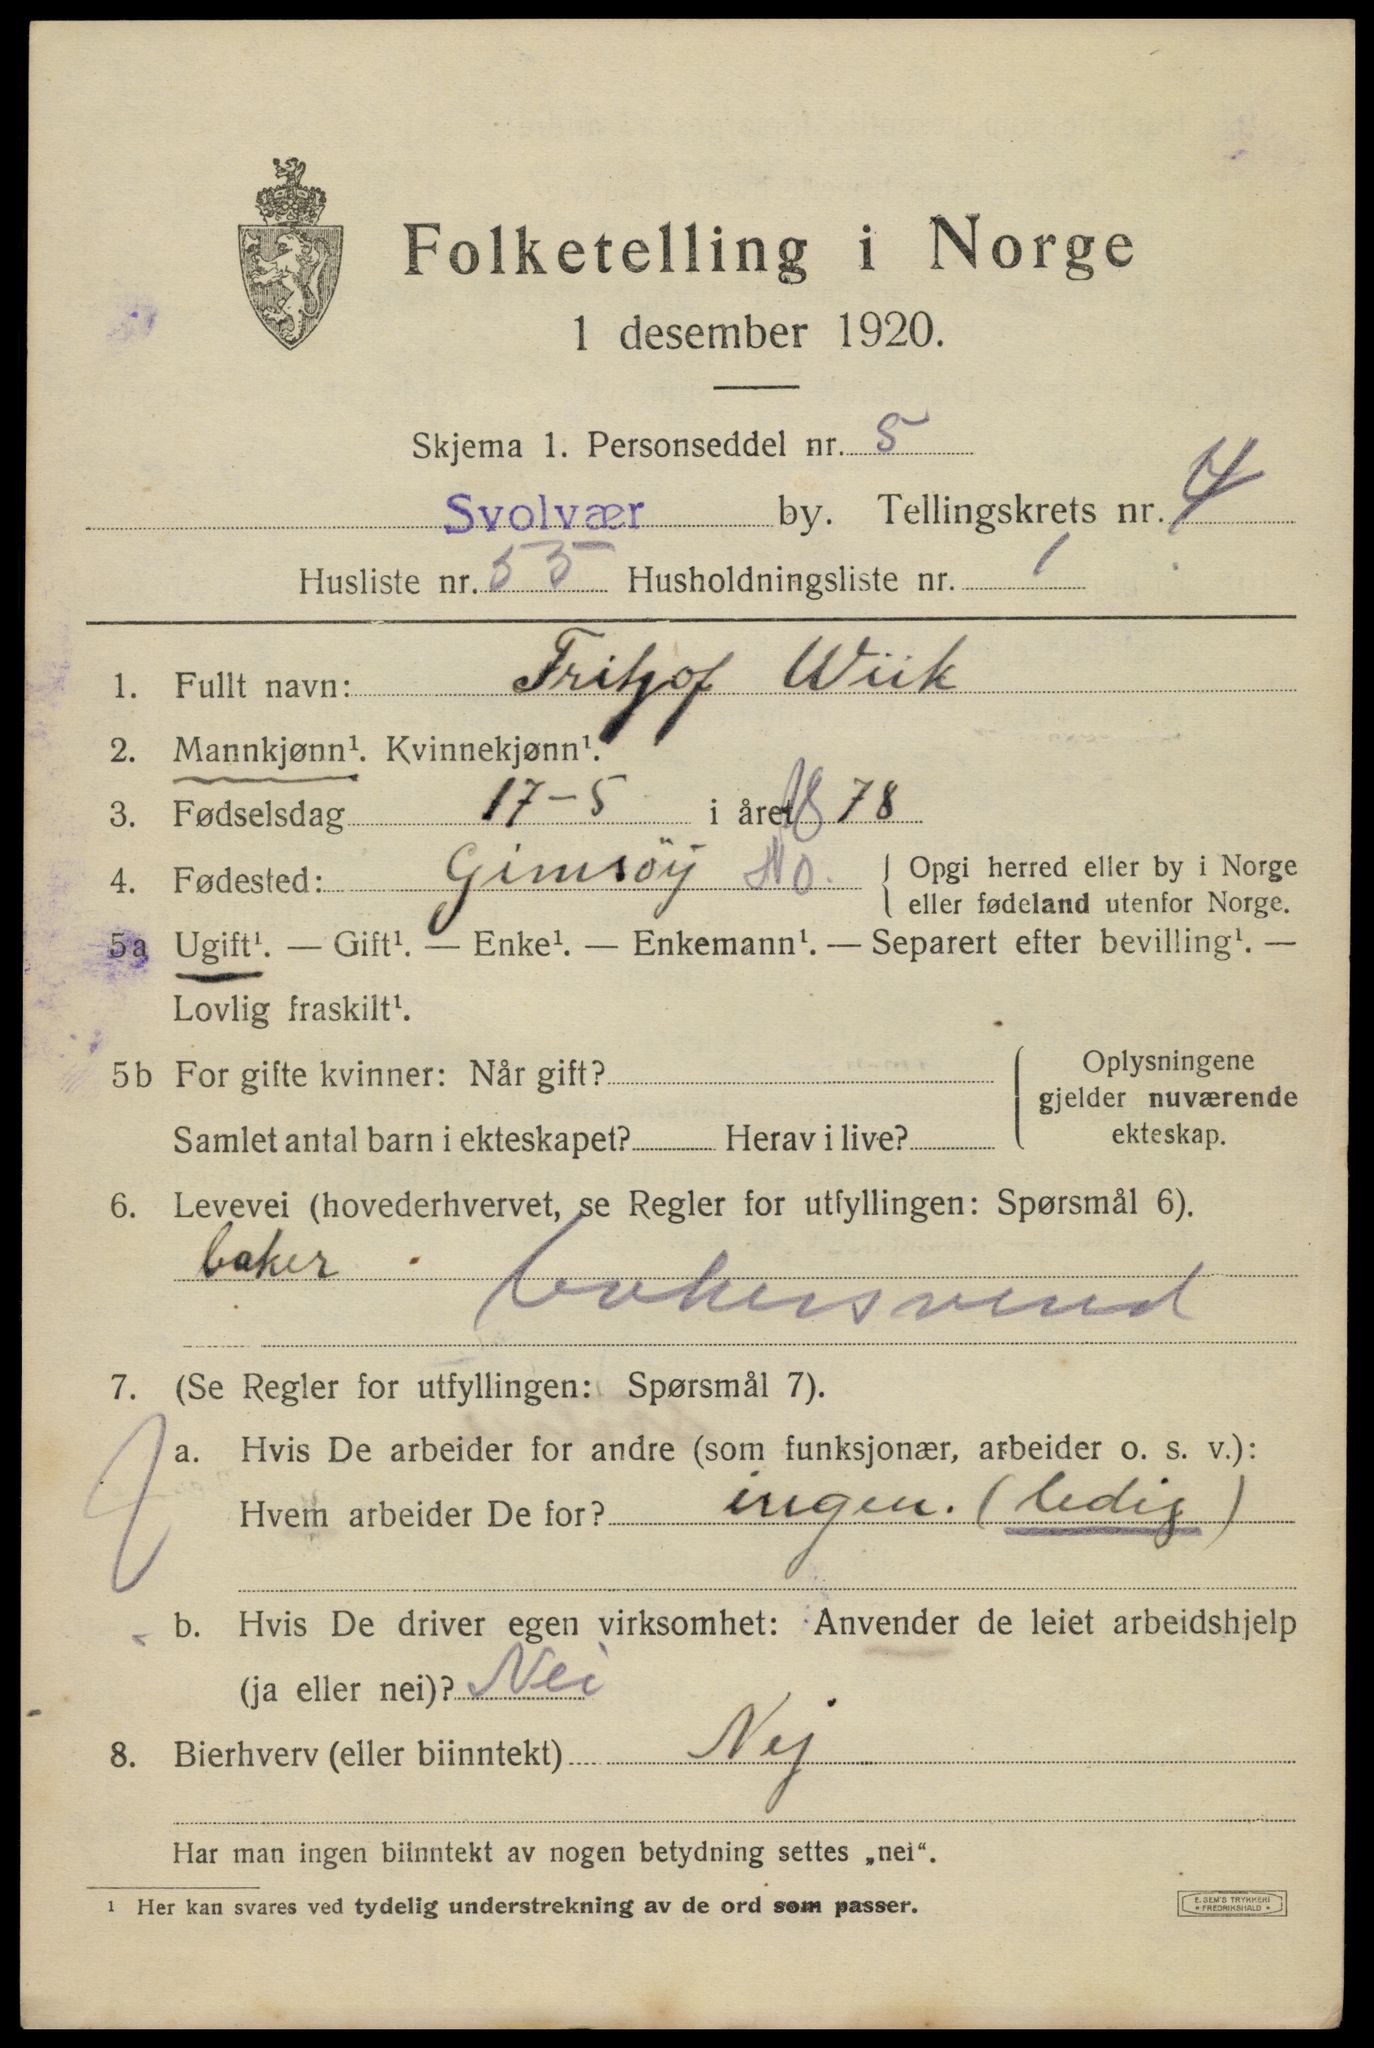 Folketelling i Norge
1 desember 1920.
Skjema 1. Personseddel nr. 5
Svolvær by. Tellingskrets nr. 4
Husliste nr. 55 Husholdningsliste nr. 1
1. Fullt navn: Fritjof Wiik
2. Mannkjønn¹. Kvinnekjønn¹.
3. Fødselsdag 17-5 i året 18 78
4. Fødested: Gimsöy No. { Opgi herred eller by i Norge
eller fødeland utenfor Norge.
5a Ugift¹. — Gift¹. — Enke¹. — Enkemann¹. — Separert efter bevilling¹. —
Lovlig fraskilt¹.
5b For gifte kvinner: Når gift?
Samlet antal barn i ekteskapet? Herav i live?
Oplysningene
gjelder nuværende
ekteskap.
6. Levevei (hovederhvervet, se Regler for utfyllingen: Spørsmål 6).
baker
bakersvend
7. (Se Regler for utfyllingen: Spørsmål 7).
a. Hvis De arbeider for andre (som funksjonær, arbeider o. s. v.):
Hvem arbeider De for? ingen. (ledig)
b. Hvis De driver egen virksomhet: Anvender de leiet arbeidshjelp
(ja eller nei)? Nei
8. Bierhverv (eller biinntekt) Nej
Har man ingen biinntekt av nogen betydning settes „nei“.
¹ Her kan svares ved tydelig understrekning av de ord som passer.
E. SEM'S TRYKKERI
* FREDRIKSHALD *